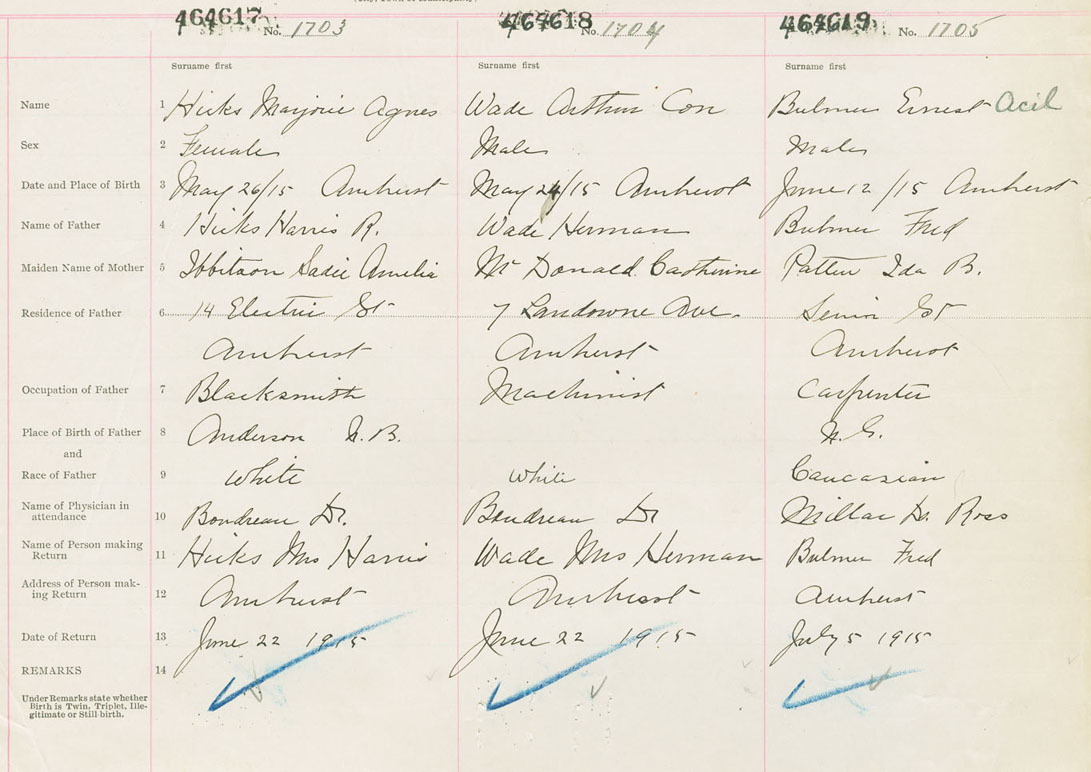 464617 No. 1703 464618 No. 1704 464619 No. 1705
Surname first Surname first Surname first
Name 1 Hicks Marjorie Agnes Wade Arthur Con Bulmer Ernest Acil
Sex 2 Female Male Male
Date and Place of Birth 3 May 26/15 Amherst May 24/15 Amherst June 12/15 Amherst
Name of Father 4 Hicks Harris R. Wade Herman Bulmer Fred
Maiden Name of Mother 5 Ibbitson Sadie Amelia Mc Donald Catherine Patten Ida B.
Residence of Father 6 14 Electric St 7 Landowne Ave. St
Amherst Amherst Amherst
Occupation of Father 7 Blacksmith Machinist Carpenter
Place of Birth of Father 8 Anderson N.B. N.S.
and
Race of Father 9 White White Caucasian
Name of Physician in
attendance 10 Boudreau Dr. Boudreau Dr Millar Dr. Ross
Name of Person making
Return 11 Hicks Mrs Harris Wade Mrs Herman Bulmer Fred
Address of Person mak-
ing Return 12 Amherst Amherst Amherst
Date of Return 13 June 22 1915 June 22 1915 July 5 1915
REMARKS 14
Under Remarks state whether
Birth is Twin, Triplet, Ille-
gitimate or Still-birth.